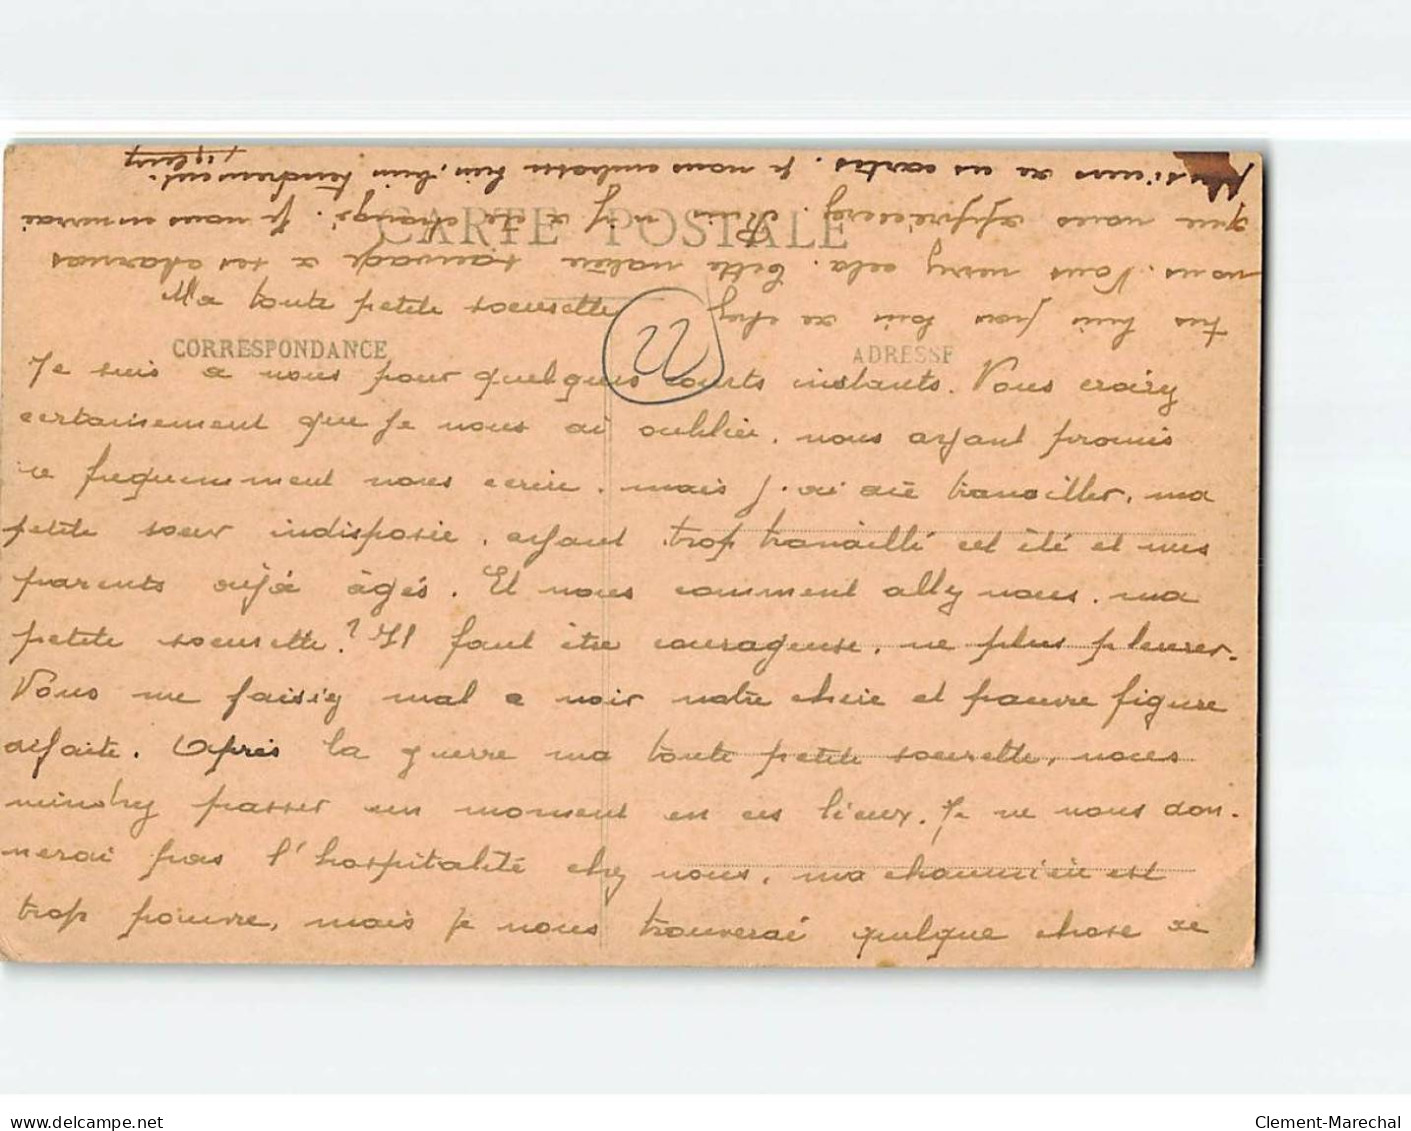 CARTE POSTALE
CORRESPONDANCE
ADRESSE
22
Ma toute petite soeurette
Je suis a vous pour quelques courts instants. Vous croiez
certainement que je vous ai oubliée, vous ayant promis
de frequemment vous ecrire, mais j'ai du travailler, ma
petite soeur indisposée, ayant trop travaillé cet été et mes
parents déjà âgés. Et vous comment allez vous, ma
petite soeurette? Il faut être courageuse, ne plus pleurer.
Vous me faisiez mal a voir votre chère et pauvre figure
défaite. Après la guerre ma toute petite soeurette, vous
viendrez passer un moment en ces lieux. Je ne vous don-
nerai pas l'hospitalité chez nous, ma chaumière est
trop pauvre, mais je vous trouverai quelque chose de
très bien pas loin de chez
nous. Vous verrez cela. Cette nature sauvage a ses charmes
que vous apprécierez. Rien n'y a été changé. Je vous enverrai
plusieurs de ces cartes. Je vous embrasse bien, bien tendrement.